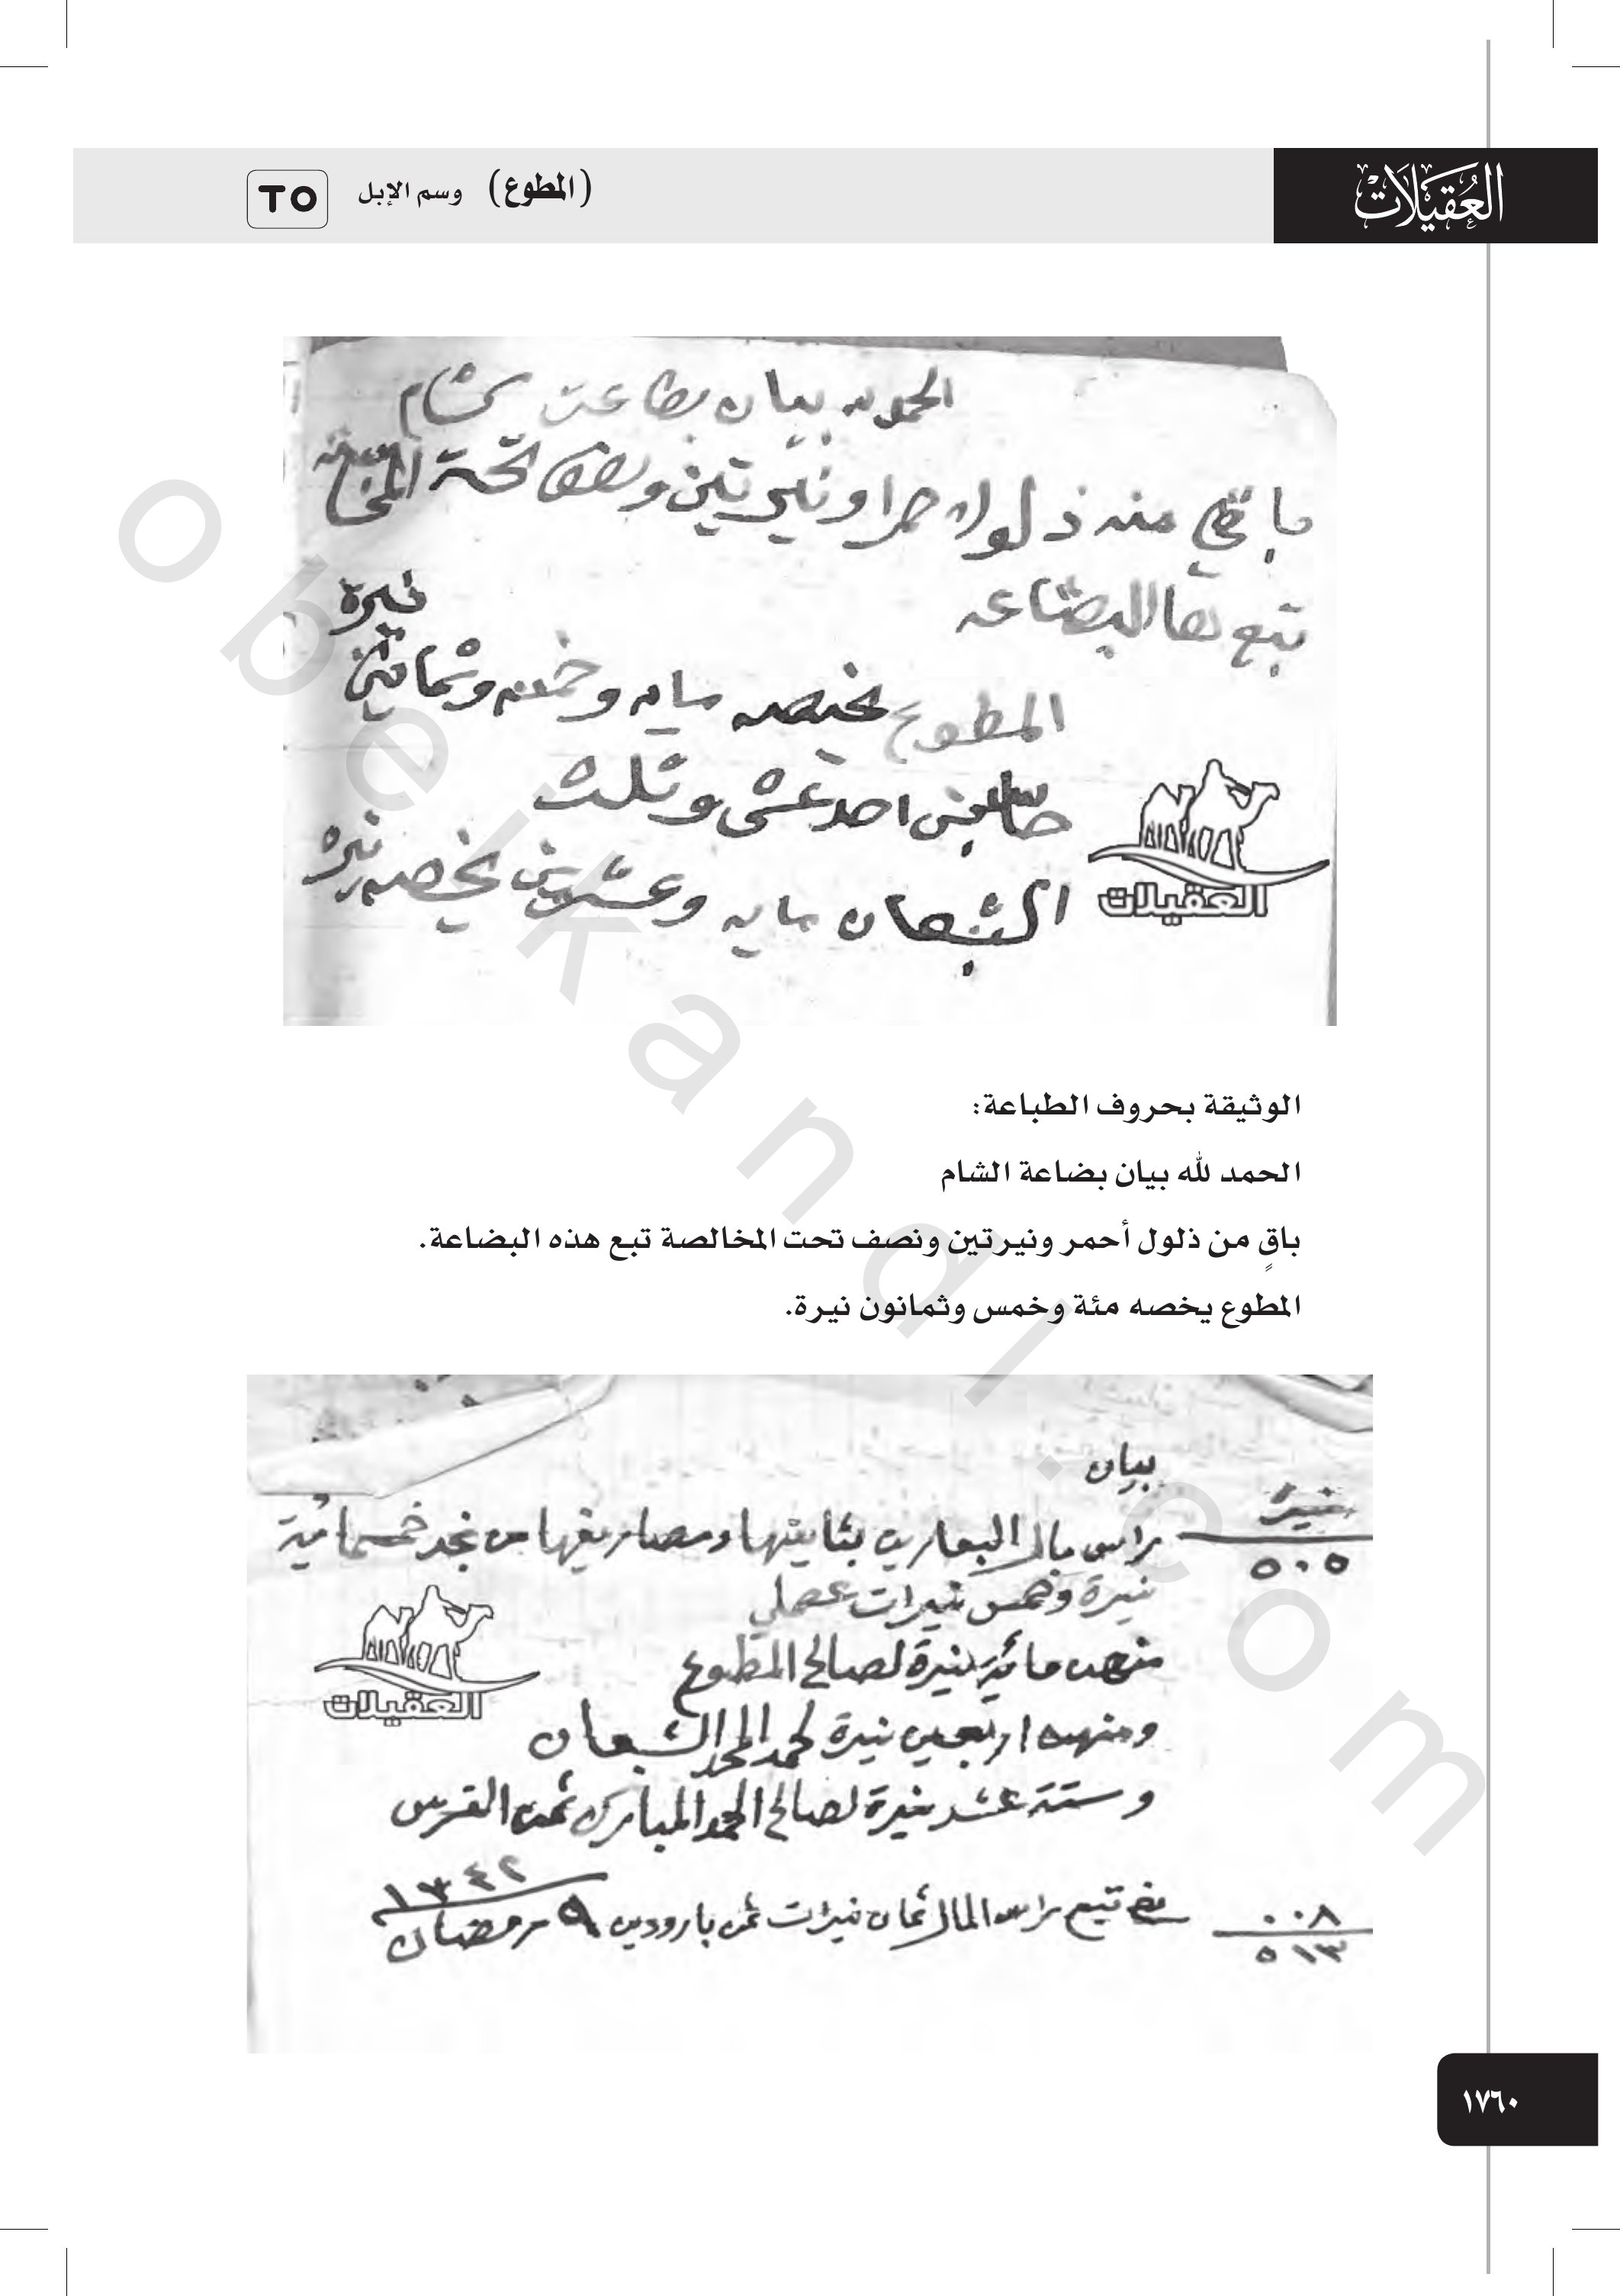 العُقيلات
(المطوع) وسم الإبل TO
الحمد لله بيان بضاعت الشام
باقي منه ذلول حمرا ونيرتين ونصف تحت
تبع هالبضاعه
نيرة
المطوع يخصه مايه وخمسه وثمانين
احد عشر وثلث
الشبعان مايه وعشرين يخصه نيره
العقيلات
الوثيقة بحروف الطباعة:
الحمد لله بيان بضاعة الشام
باقٍ من ذلول أحمر ونيرتين ونصف تحت المخالصة تبع هذه البضاعة.
المطوع يخصه مئة وخمس وثمانون نيرة.
بيان
نيرة
٥٠٥
راس مال البعارين ومصاريفها من نجد خمسمائية
نيرة وخمس نيرات عصملي
العقيلات
منهن مائية نيرة لصالح المطوع
ومنهن اربعين نيرة لحمد المحمد الشبعان
وستة عشر نيرة لصالح الحمد المبارك ثمن الفرس
١٣٤٢
تبع راس المال ثمان نيرات ثمن بارودين ٩ رمضان
٠٠٨
٥١٣
١٧٦٠
obeikandi.com